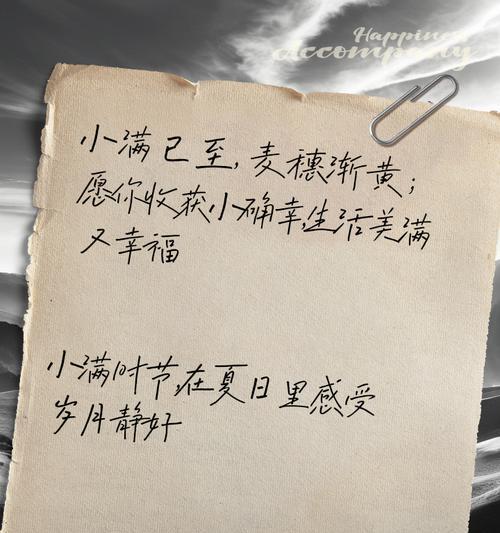 Happiness
Accompany
小满已至,麦穗渐黄;
愿你收获小确幸,生活美满
又幸福
小满时节,在夏日里感受
岁月静好